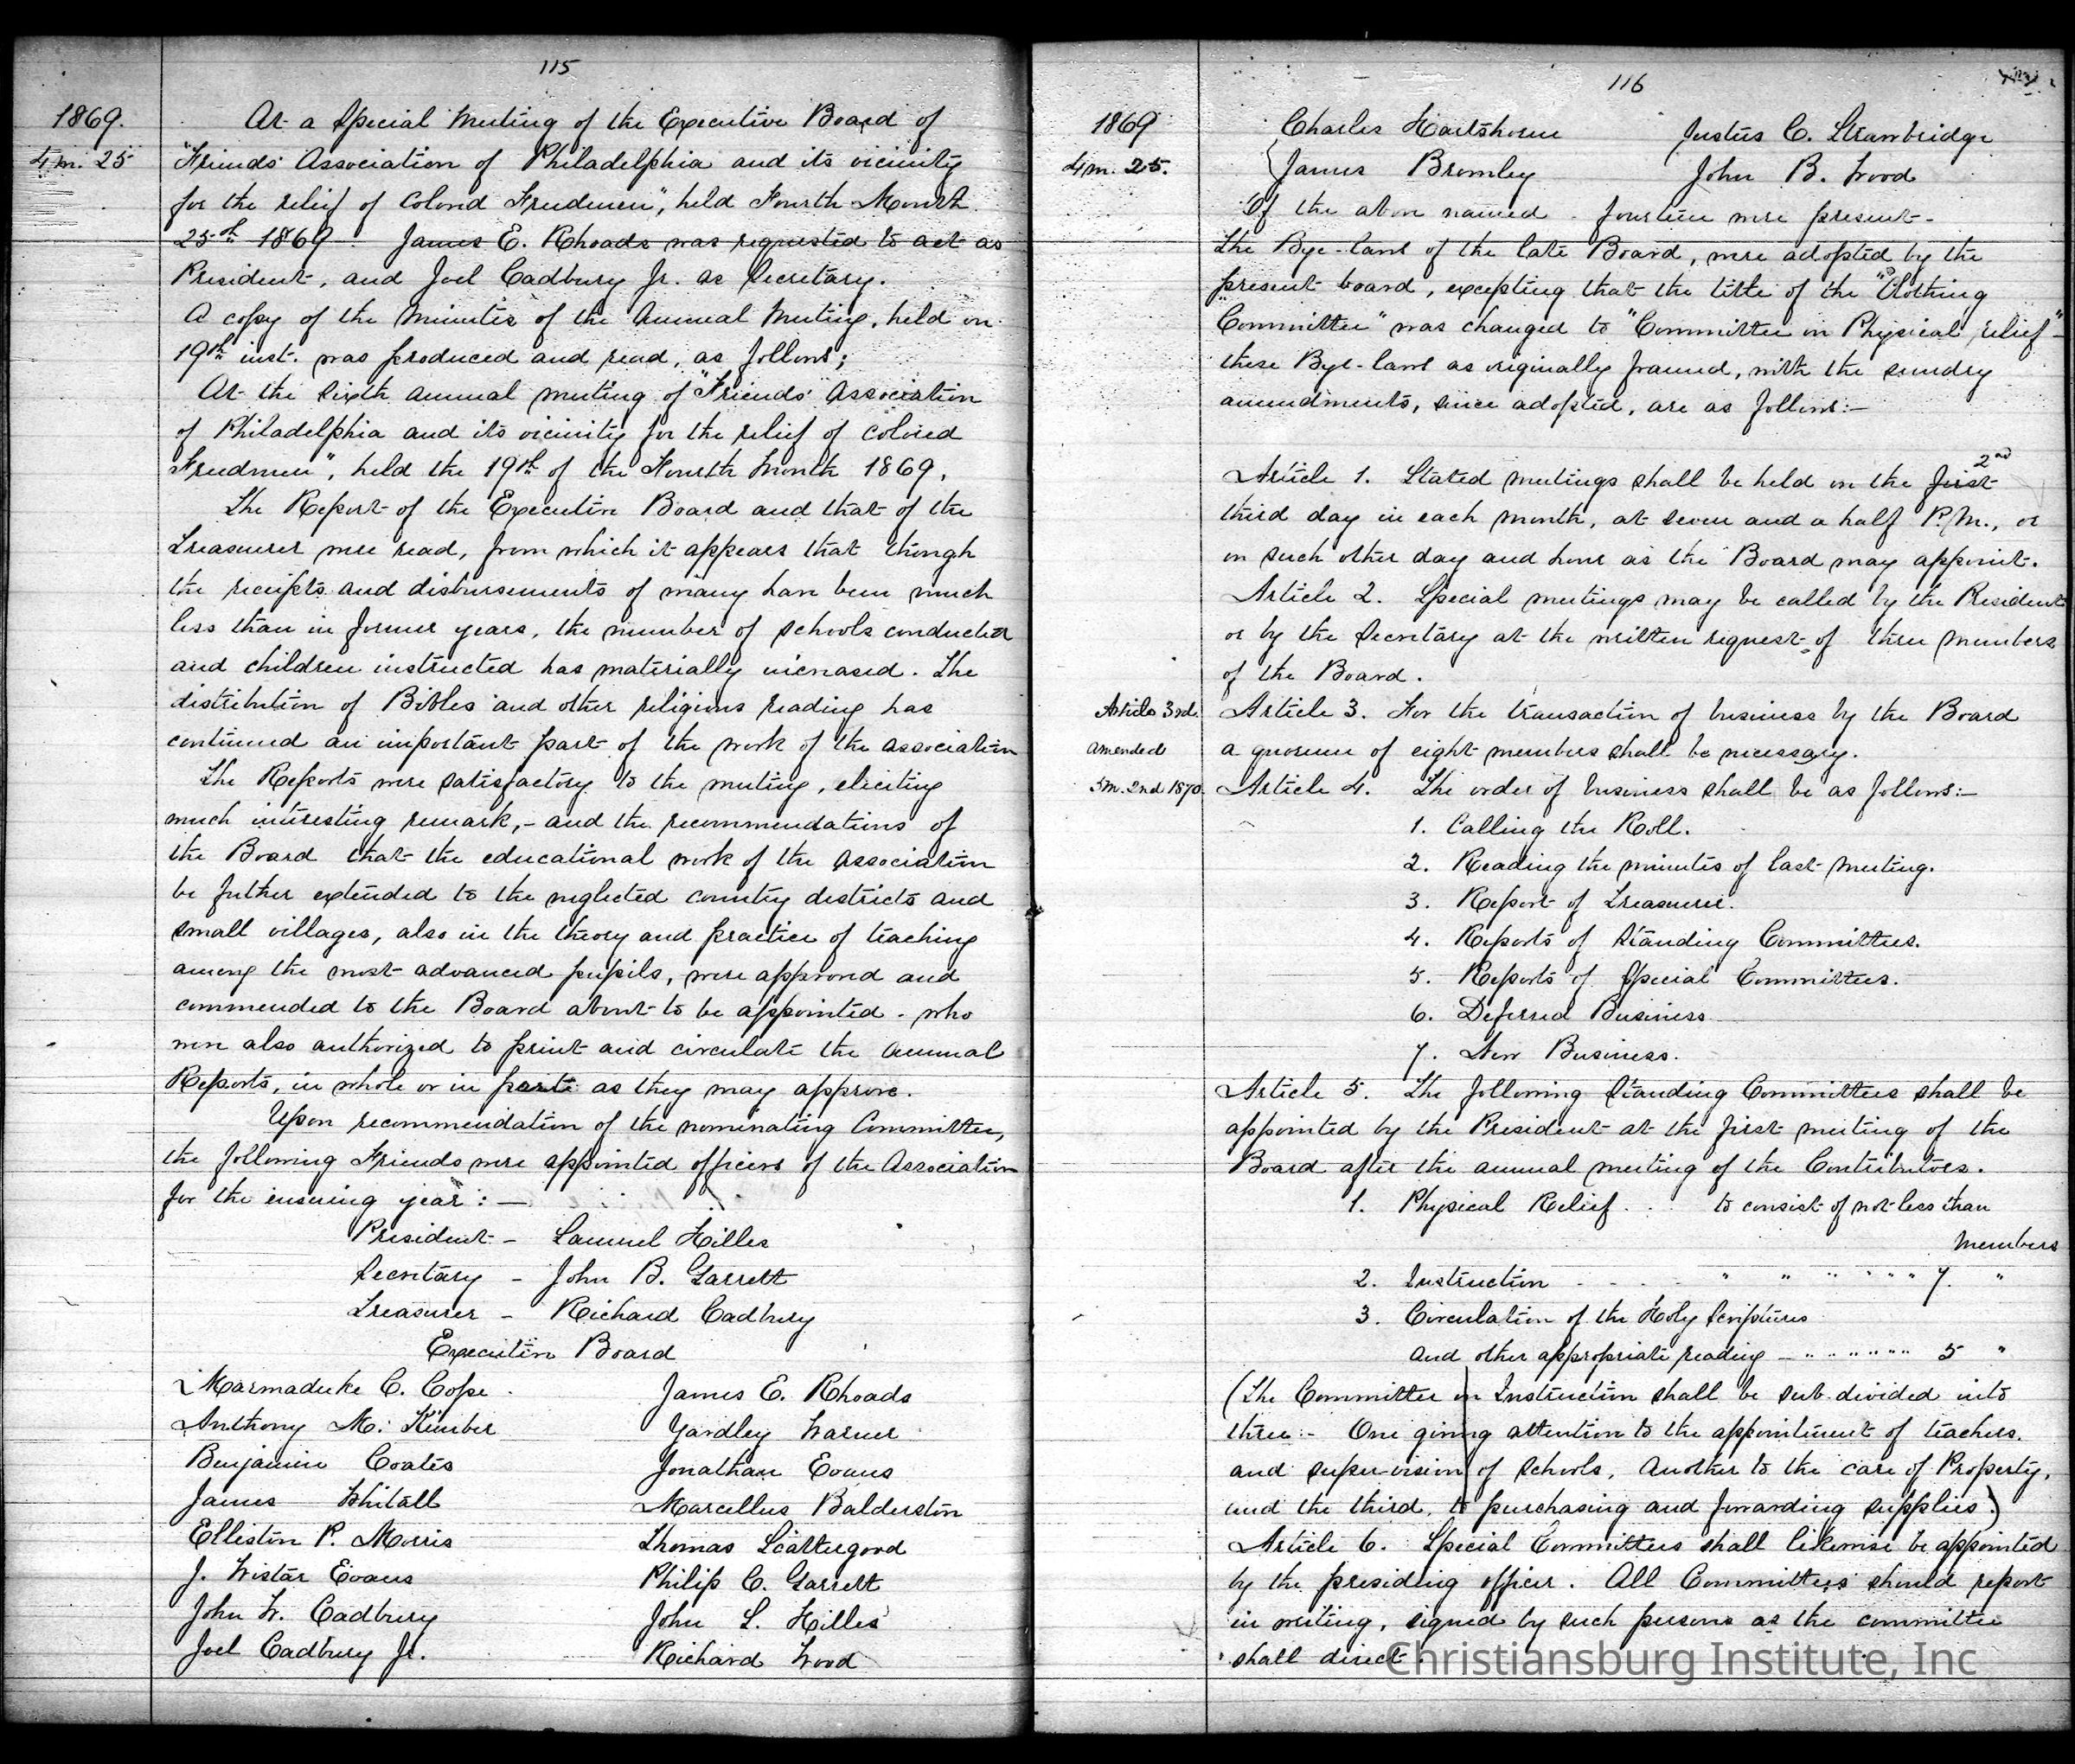 115
1869.
4 m. 25
At a Special Meeting of the Executive Board of
"Friends' Association of Philadelphia and its vicinity
for the relief of Colored Freedmen", held Fourth Month
25th 1869. James E. Rhoads was requested to act as
President, and Joel Cadbury Jr. as Secretary.
A copy of the Minutes of the Annual Meeting, held on
19th inst. was produced and read, as follows;
At the sixth annual meeting of "Friends' Association
of Philadelphia and its vicinity for the relief of colored
Freedmen", held the 19th of the Fourth Month 1869.
The Report of the Executive Board and that of the
Treasurer were read, from which it appears that though
the receipts and disbursements of many have been much
less than in former years, the number of schools conducted
and children instructed has materially increased. The
distribution of Bibles and other religious reading has
continued an important part of the work of the association
The Reports were satisfactory to the meeting, eliciting
much interesting remark,- and the recommendations of
the Board that the educational work of the association
be futher extended to the neglected country districts and
small villages, also in the theory and practice of teaching
among the most advanced pupils, were approved and
commended to the Board about to be appointed - who
were also authorized to print and circulate the annual
Reports, in whole or in parts as they may approve.
Upon recommendation of the nominating Committee,
the following Friends were appointed officers of the Association
for the ensuing year: —
President - Samuel Hilles
Secretary - John B. Garrett
Treasurer - Richard Cadbury
Executive Board
Marmaduke C. Cope James E. Rhoads
Anthony M. Kimber Yardley Warner
Benjamin Coates Jonathan Evans
James Whitall Marcellus Balderston
Elliston P. Morris Thomas Scattergood
J. Wistar Evans Philip C. Garrett
John W. Cadbury John S. Hilles
Joel Cadbury Jr. Richard Wood
116
1869
4 m. 25.
Charles Hartshorne Justus C. Strawbridge
James Bromley John B. Wood
Of the above named - fourteen were present -
The Bye-laws of the late Board, were adopted by the
present board, excepting that the title of the "Clothing
Committee" was changed to "Committee on Physical relief" -
these Bye-laws as originally framed, with the sundry
amendments, since adopted, are as follows:-
2nd
Article 1. Stated meetings shall be held on the first
third day in each month, at seven and a half P.M., or
on such other day and hour as the Board may appoint.
Article 2. Special meetings may be called by the President
or by the Secretary at the written request of three members
of the Board.
Article 3rd
amended
5m. 2nd 1870.
Article 3. For the transaction of business by the Board
a quorum of eight members shall be necessary.
Article 4. The order of business shall be as follows:-
1. Calling the Roll.
2. Reading the minutes of last meeting.
3. Report of Treasurer.
4. Reports of Standing Committees.
5. Reports of Special Committees.
6. Deferred Business
7. New Business.
Article 5. The following Standing Committees shall be
appointed by the President at the first meeting of the
Board after the annual meeting of the Contributors.
1. Physical Relief . . to consist of not less than
members
2. Instruction - - - - " " " " " " 7. "
3. Circulation of the Holy Scriptures
and other appropriate reading - " " " " " " 5 "
(The Committee on Instruction shall be sub-divided into
three - One giving attention to the appointment of teachers,
and super-vision of schools, Another to the care of Property,
and the third, to purchasing and forwarding supplies.)
Article 6. Special Committees shall likewise be appointed
by the presiding officer. All Committees should report
in writing, signed by such persons as the committee
shall direct.
Christiansburg Institute, Inc